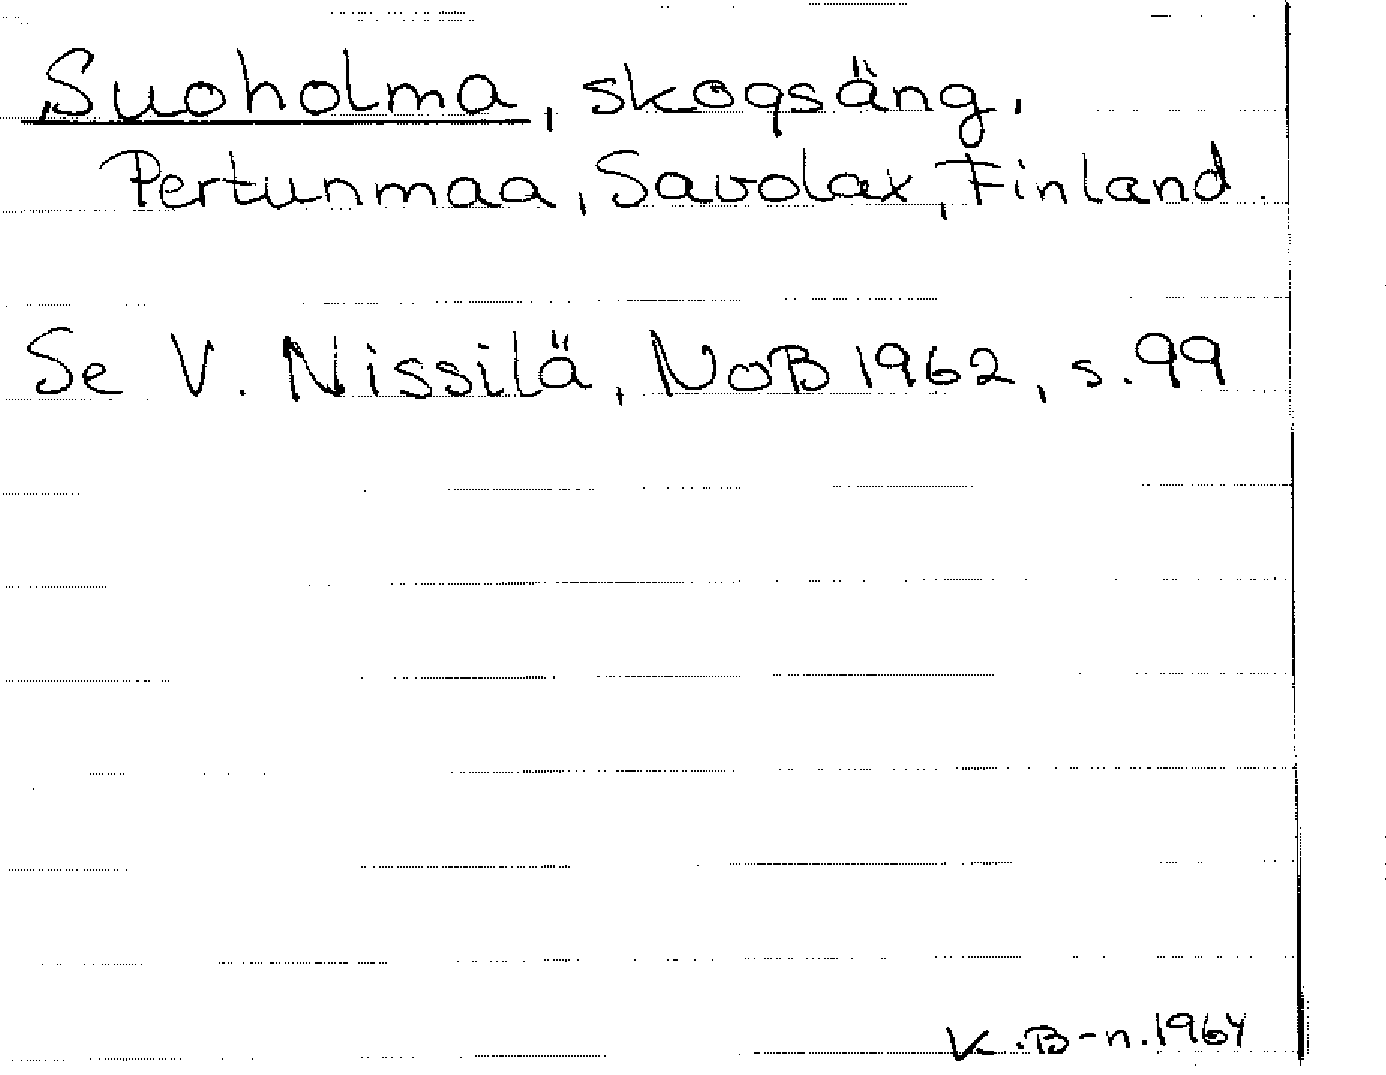 Suoholma, skogsäng.
Pertunmaa, Savolax, Finland.
Se V. Nissilä, NoB 1962, s. 99
K. B-n. 1964